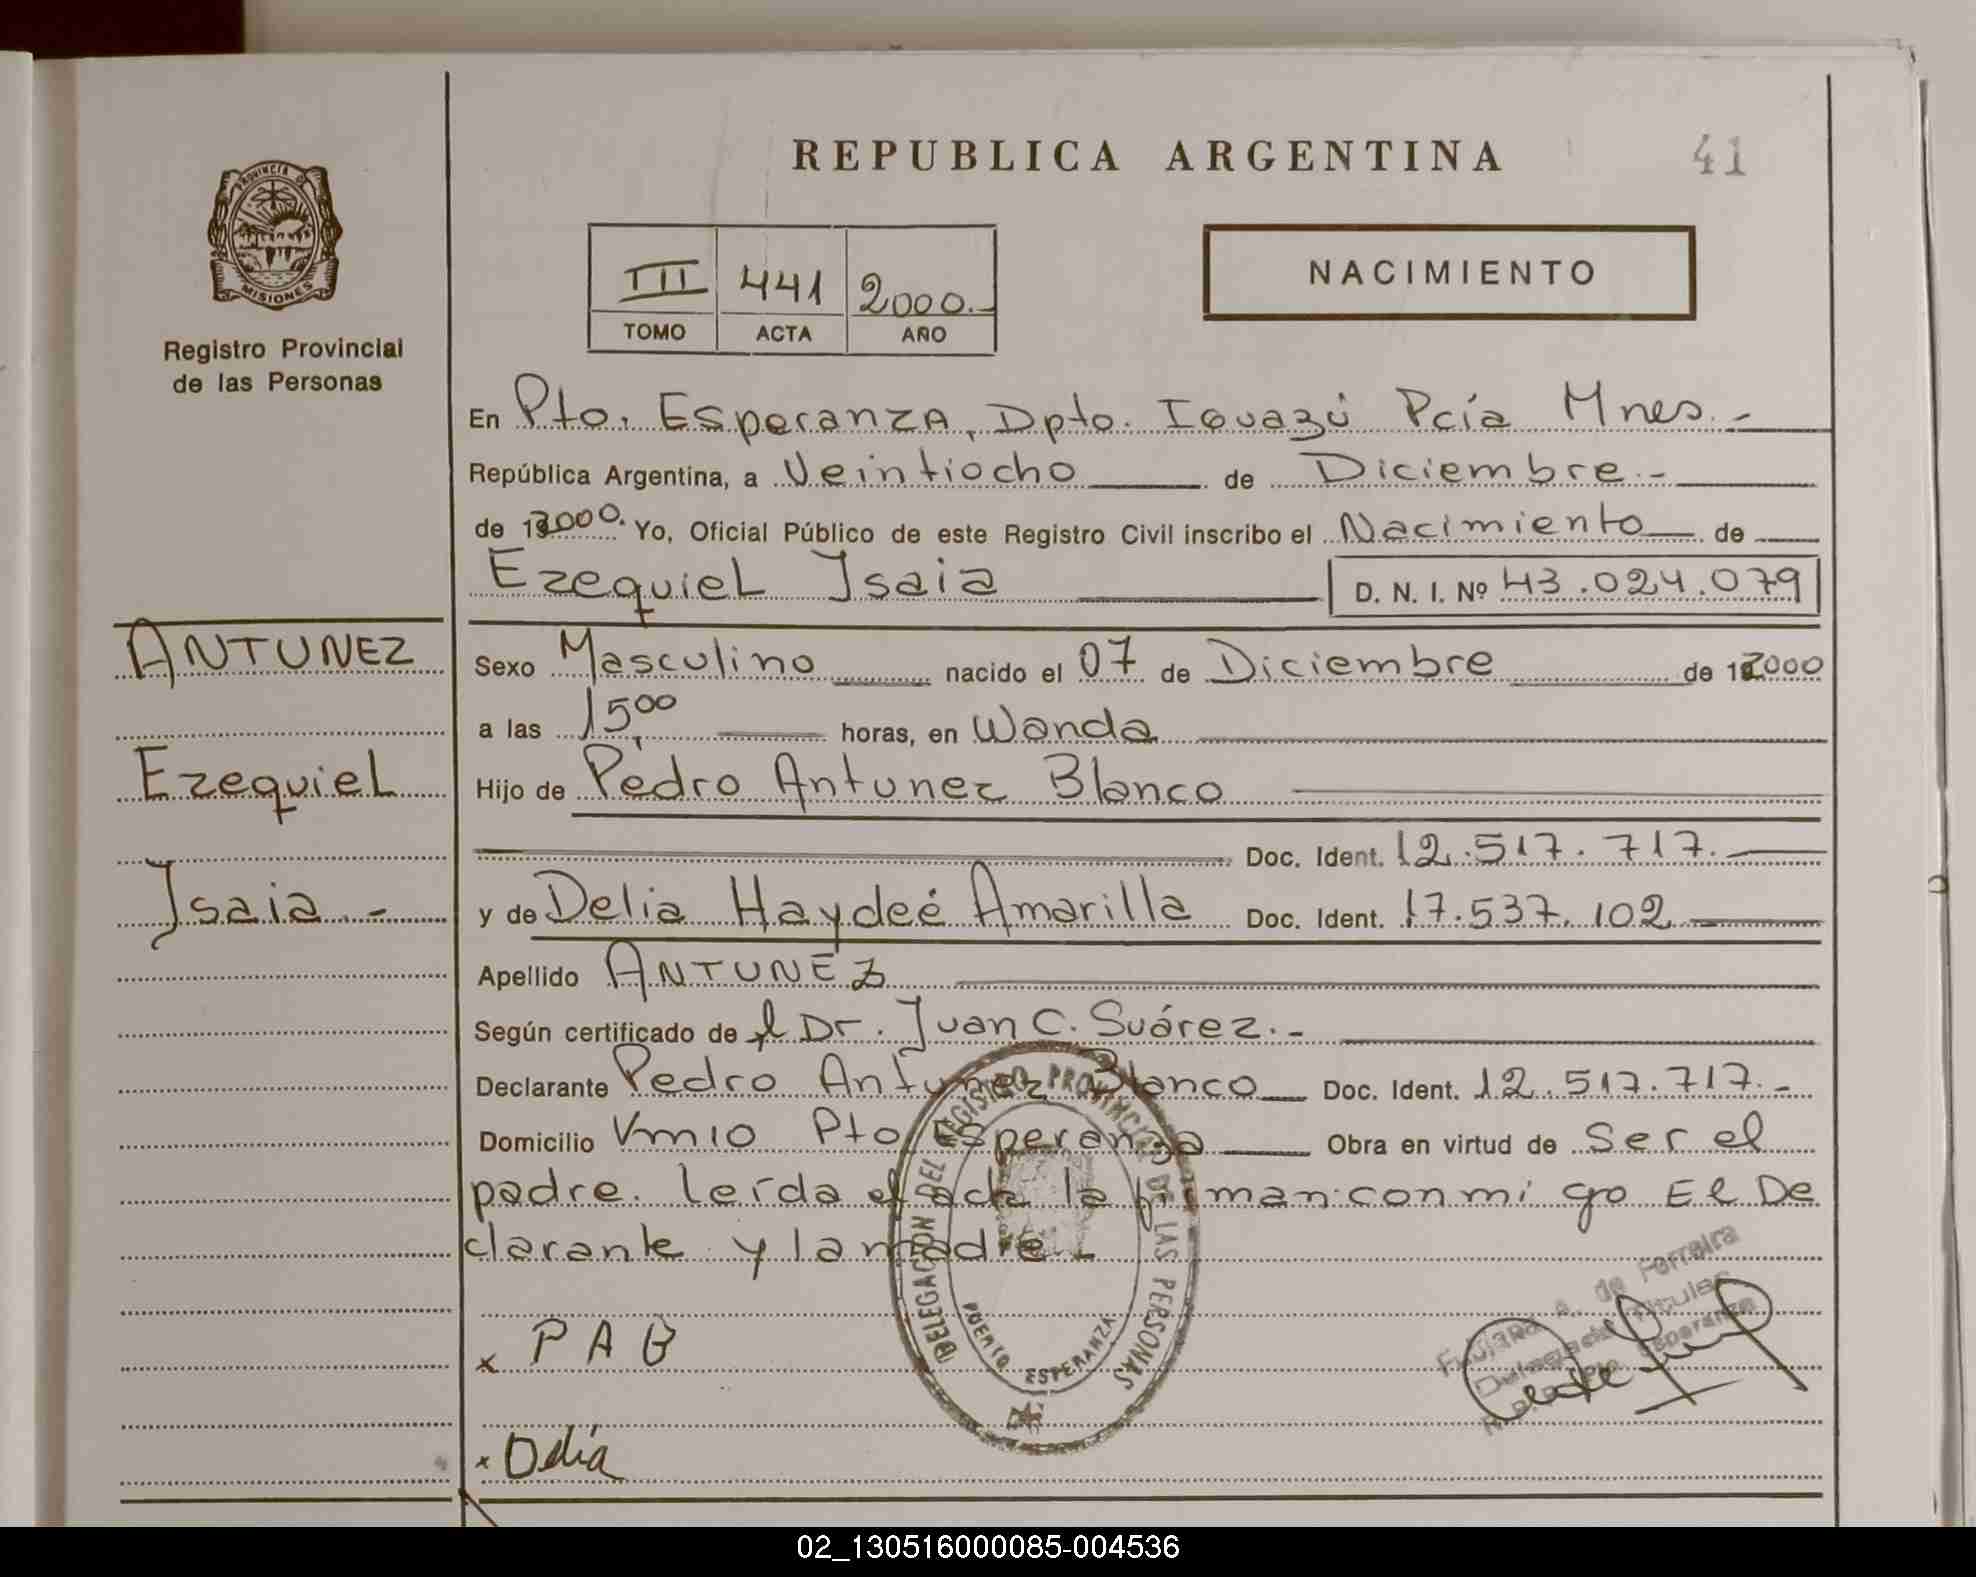 REPUBLICA ARGENTINA
41
PROVINCIA DE
MISIONES
Registro Provincial
de las Personas
III 441 2000.-
TOMO ACTA AÑO
NACIMIENTO
En Pto. Esperanza, Dpto. Iguazú Pcía Mnes.-
República Argentina, a Veintiocho de Diciembre.-
de 2000. Yo, Oficial Público de este Registro Civil inscribo el Nacimiento de
Ezequiel Isaia D. N. I. Nº 43.024.079
ANTUNEZ
Ezequiel
Isaia.-
Sexo Masculino nacido el 07 de Diciembre de 2000
a las 15,00 horas, en Wanda
Hijo de Pedro Antunez Blanco
Doc. Ident. 12.517.717.
y de Delia Haydeé Amarilla Doc. Ident. 17.537.102
Apellido ANTUNEZ
Según certificado de el Dr. Juan C. Suárez.-
Declarante Pedro Antunez Blanco Doc. Ident. 12.517.717.-
Domicilio Vm10 Pto Esperanza Obra en virtud de ser el
padre. leída el acta la firman conmigo El De
clarante y la madre.-
DELEGACION DEL REGISTRO PROVINCIAL DE LAS PERSONAS
PUERTO ESPERANZA
x PAB
x Delia
A. de Ferreira
Delegada Titular
Pto. Esperanza
02_130516000085-004536